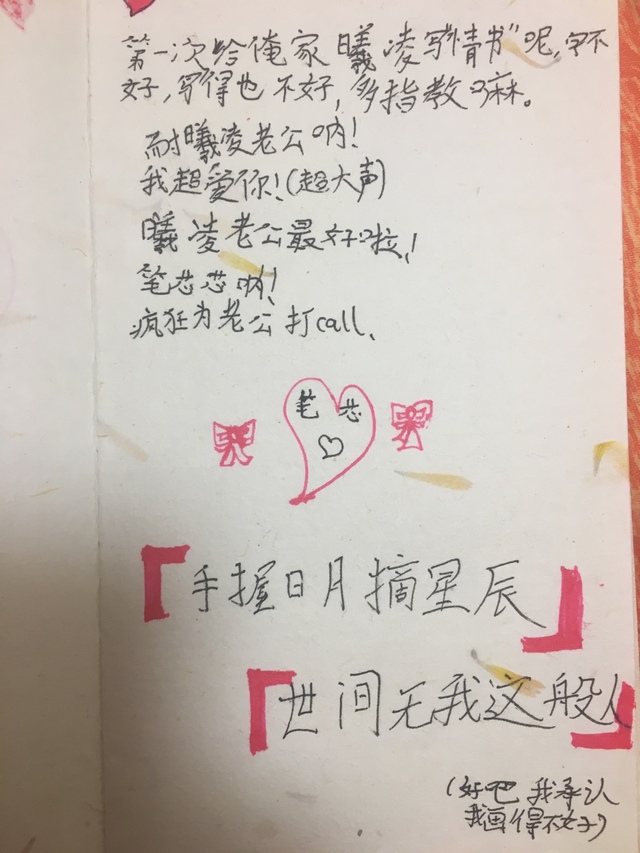 第一次给俺家曦凌写"情书"呢,字不
好,写得也不好,多指教嘛。
耐曦凌老公呐!
我超爱你!(超大声)
曦凌老公最好啦!
笔芯芯呐!
疯狂为老公打call、
笔芯
「手握日月摘星辰」
「世间无我这般人」
(好吧 我承认
我画得不好)